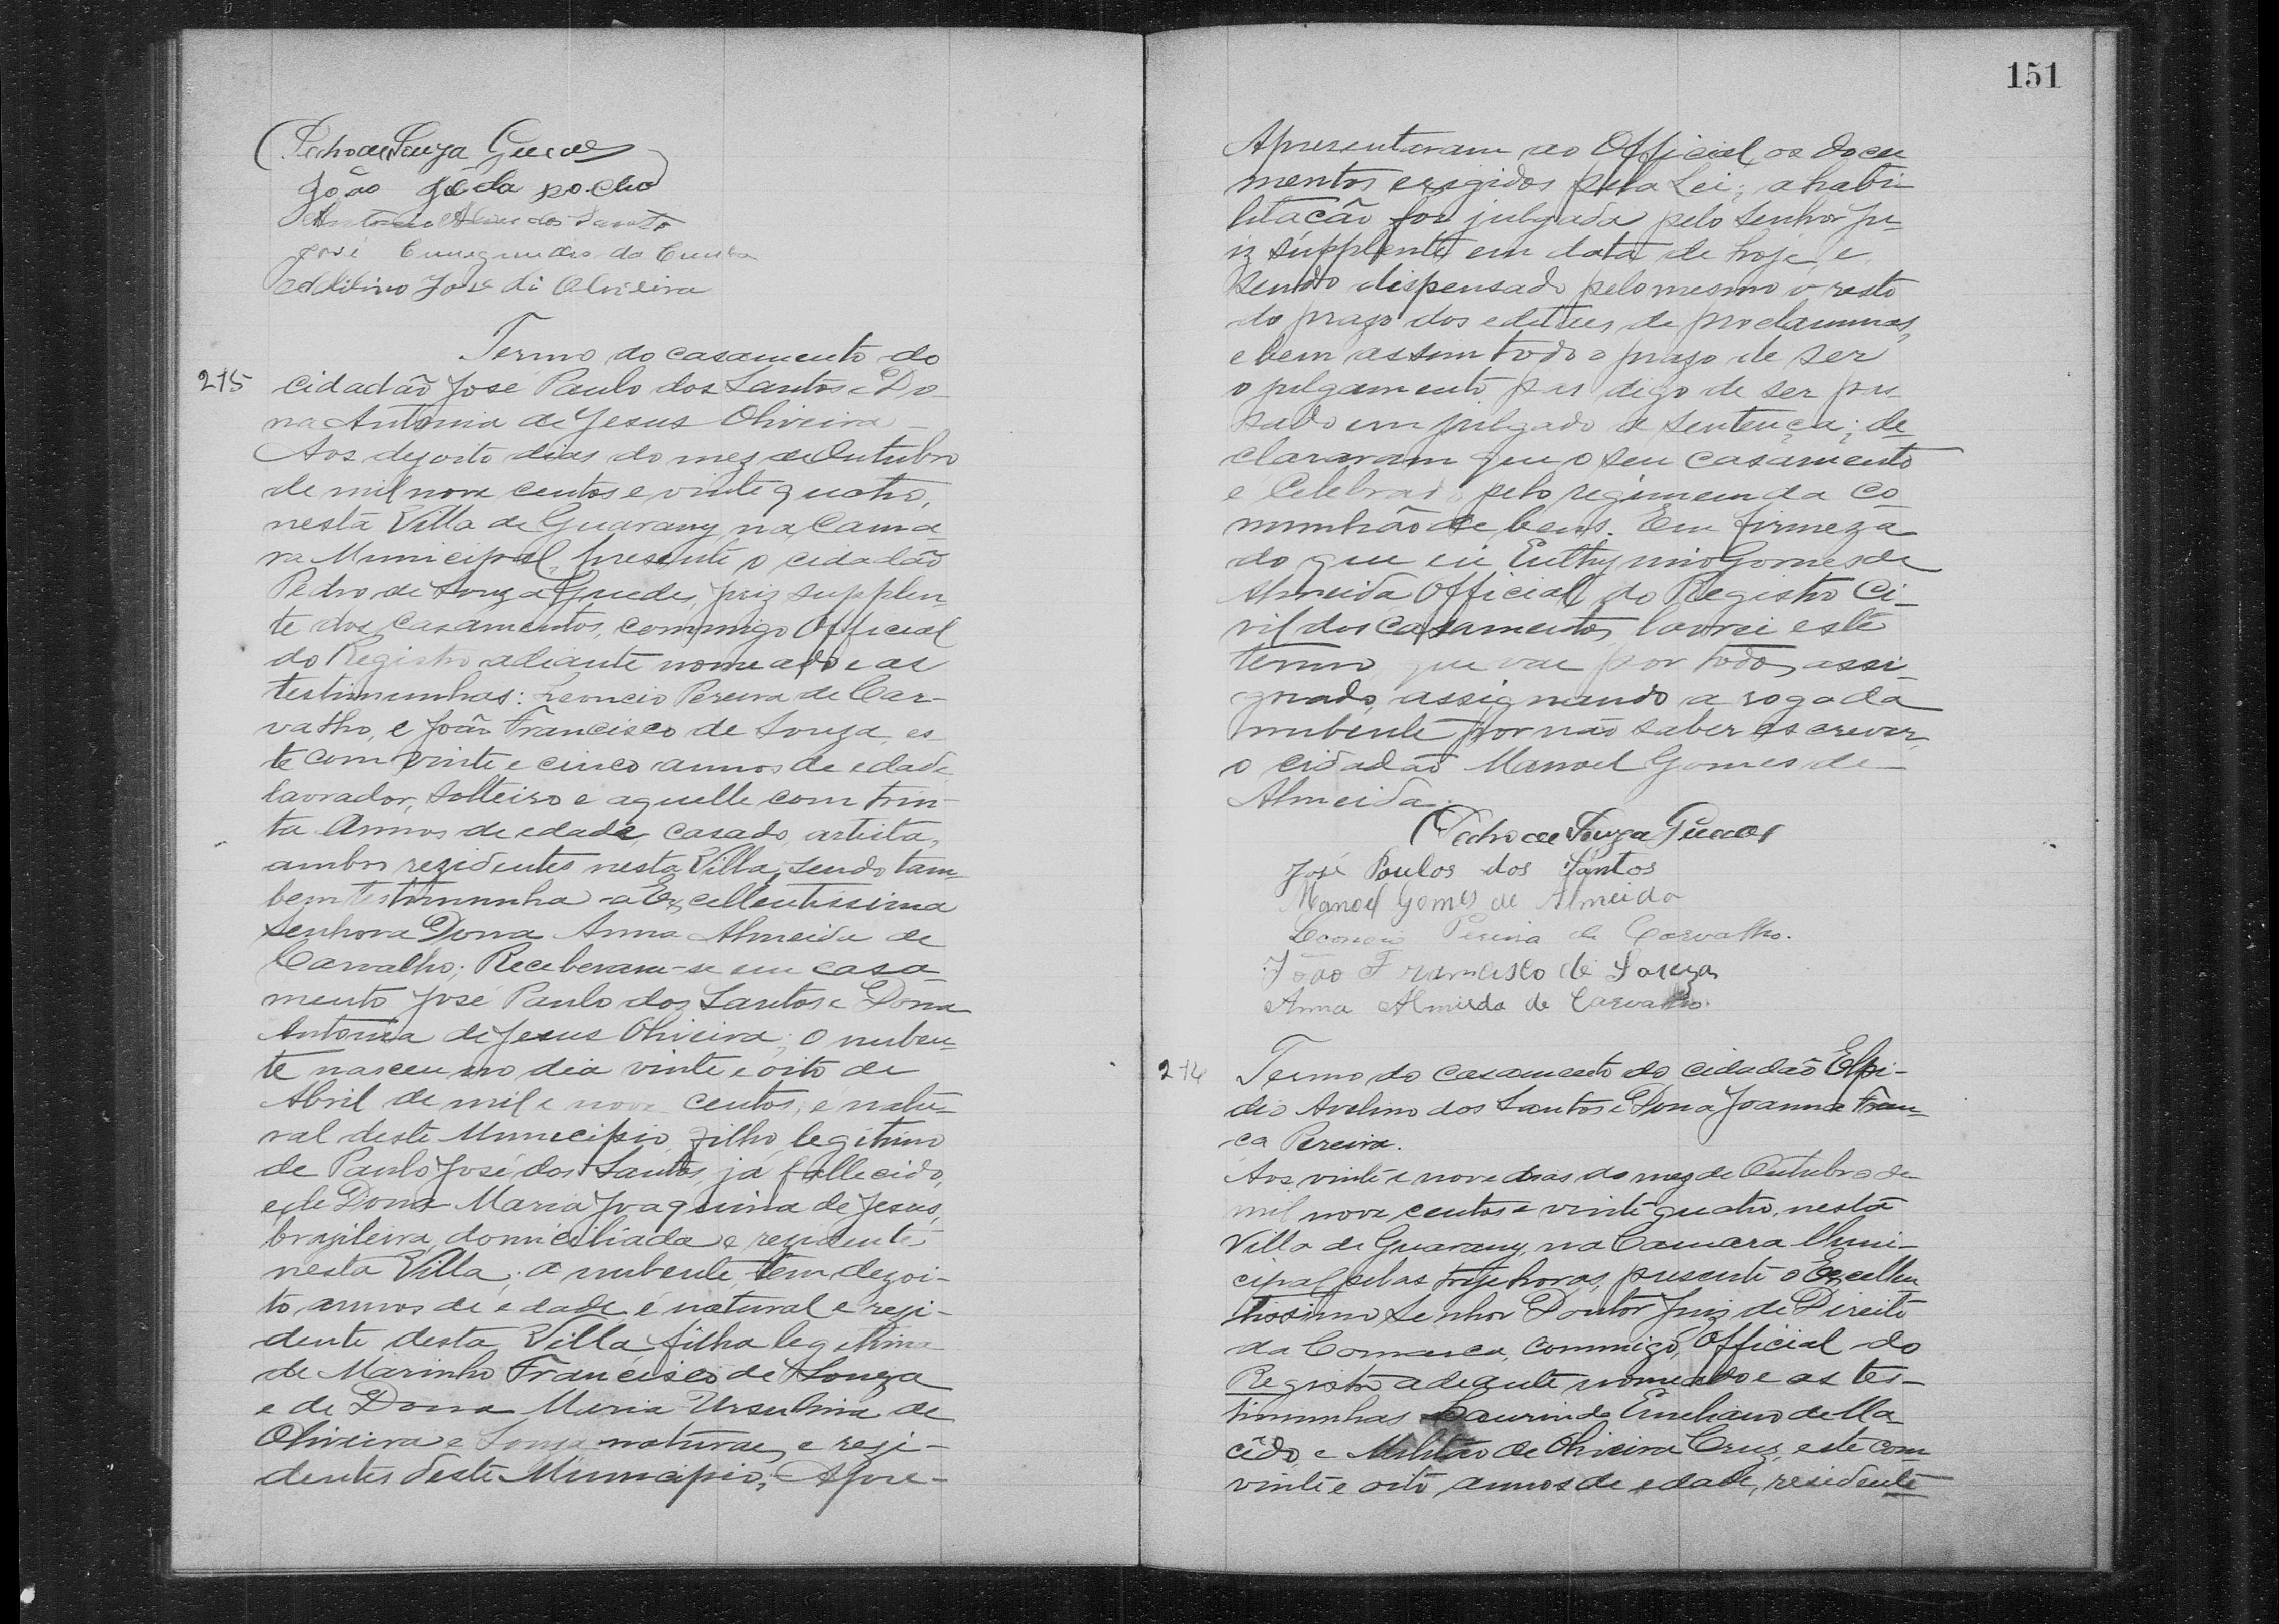 Pedro de Souza Guedes
João José da rocha
Antonio Alves dos Santos
José Cunegundes da Cunha
Adelino José di Oliveira
Termo do casamento do
215 cidadão José Paulo dos Santos e Do-
na Antonia de Jesus Oliveira
Aos dezoito dias do mez de Outubro
de mil nove centos e vinte quatro,
nesta Villa de Guarany, na Cama-
ra Municipal, presente o cidadão
Pedro de Souza Guedes, juiz supplen-
te dos casamentos, commigo Official
do Registro adeante nomeado e as
testimunhas: Leoncio Pereira de Car-
valho, e João Francisco de Souza, es-
te com vinte e cinco annos de edade
lavrador, solteiro e aquelle com trin-
ta annos de edade, casado, artista,
ambos rezidentes nesta Villa, sendo tam-
bem testimunha a Excellentissima
Senhora Dona Anna Almeida de
Carvalho; Receberam-se em casa-
mento José Paulo dos Santos e Dona
Antonia de Jesus Oliveira; O nuben-
te nasceu no dia vinte e oito de
Abril de mil e nove centos, é natu-
ral deste Municipio, filho legitimo
de Paulo José dos Santos, já fallecido,
e de Dona Maria Joaquina de Jesus,
brazileira, domiciliada e rezidente
nesta Villa; a nubente tem dezoi-
to annos de edade é natural e rezi-
dente desta Villa filha legitima
de Marinho Francisco de Souza
e de Dona Maria Ursulina de
Oliveira e Souza naturaes e rezi-
dentes deste Municipio; Apre-
151
Apresentaram ao Official os docu
mentos exigidos pela Lei; a habi-
litacão foi julgada pelo Senhor Ju-
iz supplente em data de hoje, e
sendo dispensado pelo mesmo o resto
do prazo dos editaes de proclammas,
e bem assim todo o prazo de ser
o julgamento pas digo de ser pas-
sado em julgado a sentença; de-
clararam que o seu casamento
é celebrado pelo regimem da co-
mmunhão de bens. Em firmeza
do que eu Euthymio Gomes de
Almeida Official do Registro Ci-
vil dos casamentos, lavrei este
termo que vae por todos assi-
gnado, assignando a rogo da
nubente por não saber escrever,
o cidadão Manoel Gomes de
Almeida.
Pedro de Souza Guedes
José Paulos dos Santos
Manoel Gomes de Almeida
Leoncio Pereira de Carvalho.
João Francisco de Souza
Anna Almeida de Carvalho.
Termo do casamento do cidadão Elpi-
dio Avelino dos Santos e Dona Joanna Fran-
ca Pereira.
Aos vinte e nove dias do mez de Outubro de
mil nove centos e vinte quatro, nesta
Villa de Guarany, na Camara Muni-
cipal pelas treze horas, presente o Excellen
tissimo Senhor Doutor Juiz de Direito
da Comarca, commigo, Official do
Registro adeante nomeado e as tes-
timunhas Laurindo Emeliano de Ma-
cêdo e Militão de Oliveira Cruz, este com
vinte e oito annos de edade, residente